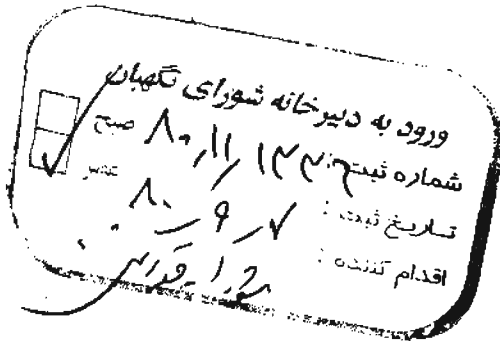 ورود به دبیرخانه شورای نگهبان
شماره ثبت: ۸۰٫۱۱٫ صبح
تاریخ ثبت: ۸۰٫۹٫۷ عصر
اقدام کننده: